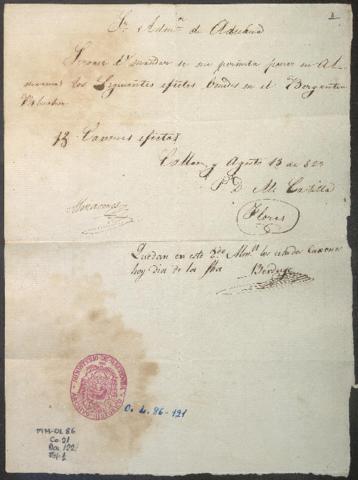 1
Sr. Admor. de Aduana
Sirvase Vd. mandar se me permita poner en Al-
macenes los siguientes efectos venidos en el Bergantin
13 Caxones efectos
Callao y Agosto 13 de 822
P. D. M. Castilla
Flores
Quedan en este Almn. los caxones
hoy dia de la fha
O.L. 86-121
MH-OL 86
Ca. 21
Do. 122
Fj. 1